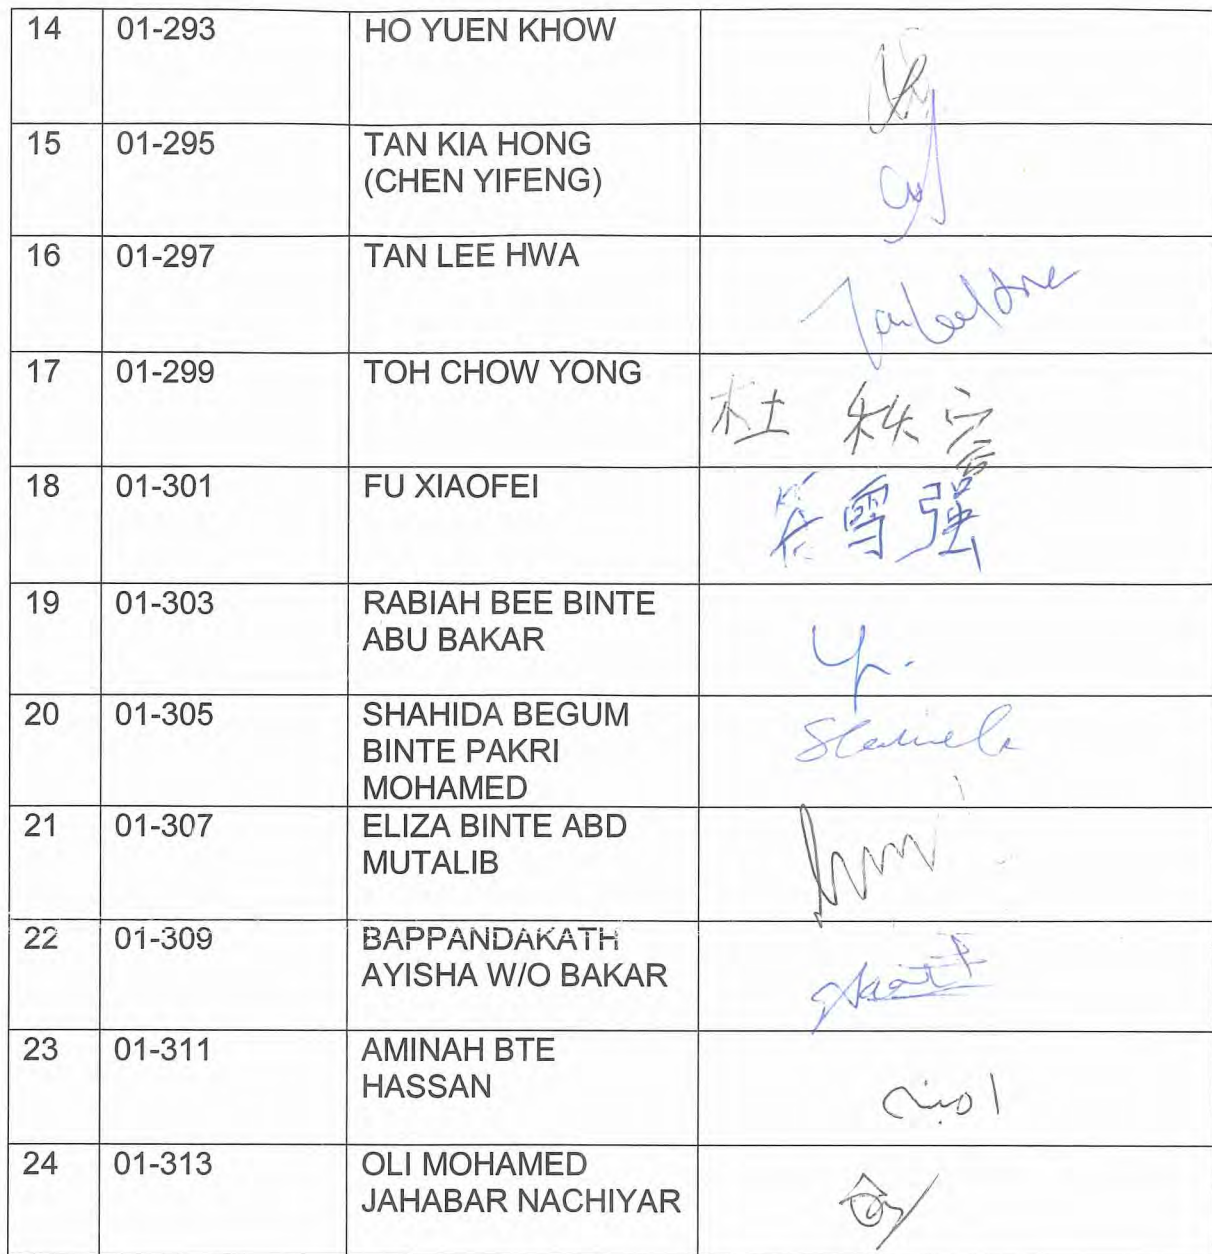 14 01-293 HO YUEN KHOW
15 01-295 TAN KIA HONG
(CHEN YIFENG)
16 01-297 TAN LEE HWA
17 01-299 TOH CHOW YONG
杜
18 01-301 FU XIAOFEI
雪强
19 01-303 RABIAH BEE BINTE
ABU BAKAR
20 01-305 SHAHIDA BEGUM
BINTE PAKRI
MOHAMED
21 01-307 ELIZA BINTE ABD
MUTALIB
22 01-309 BAPPANDAKATH
AYISHA W/O BAKAR
23 01-311 AMINAH BTE
HASSAN
امينه
24 01-313 OLI MOHAMED
JAHABAR NACHIYAR